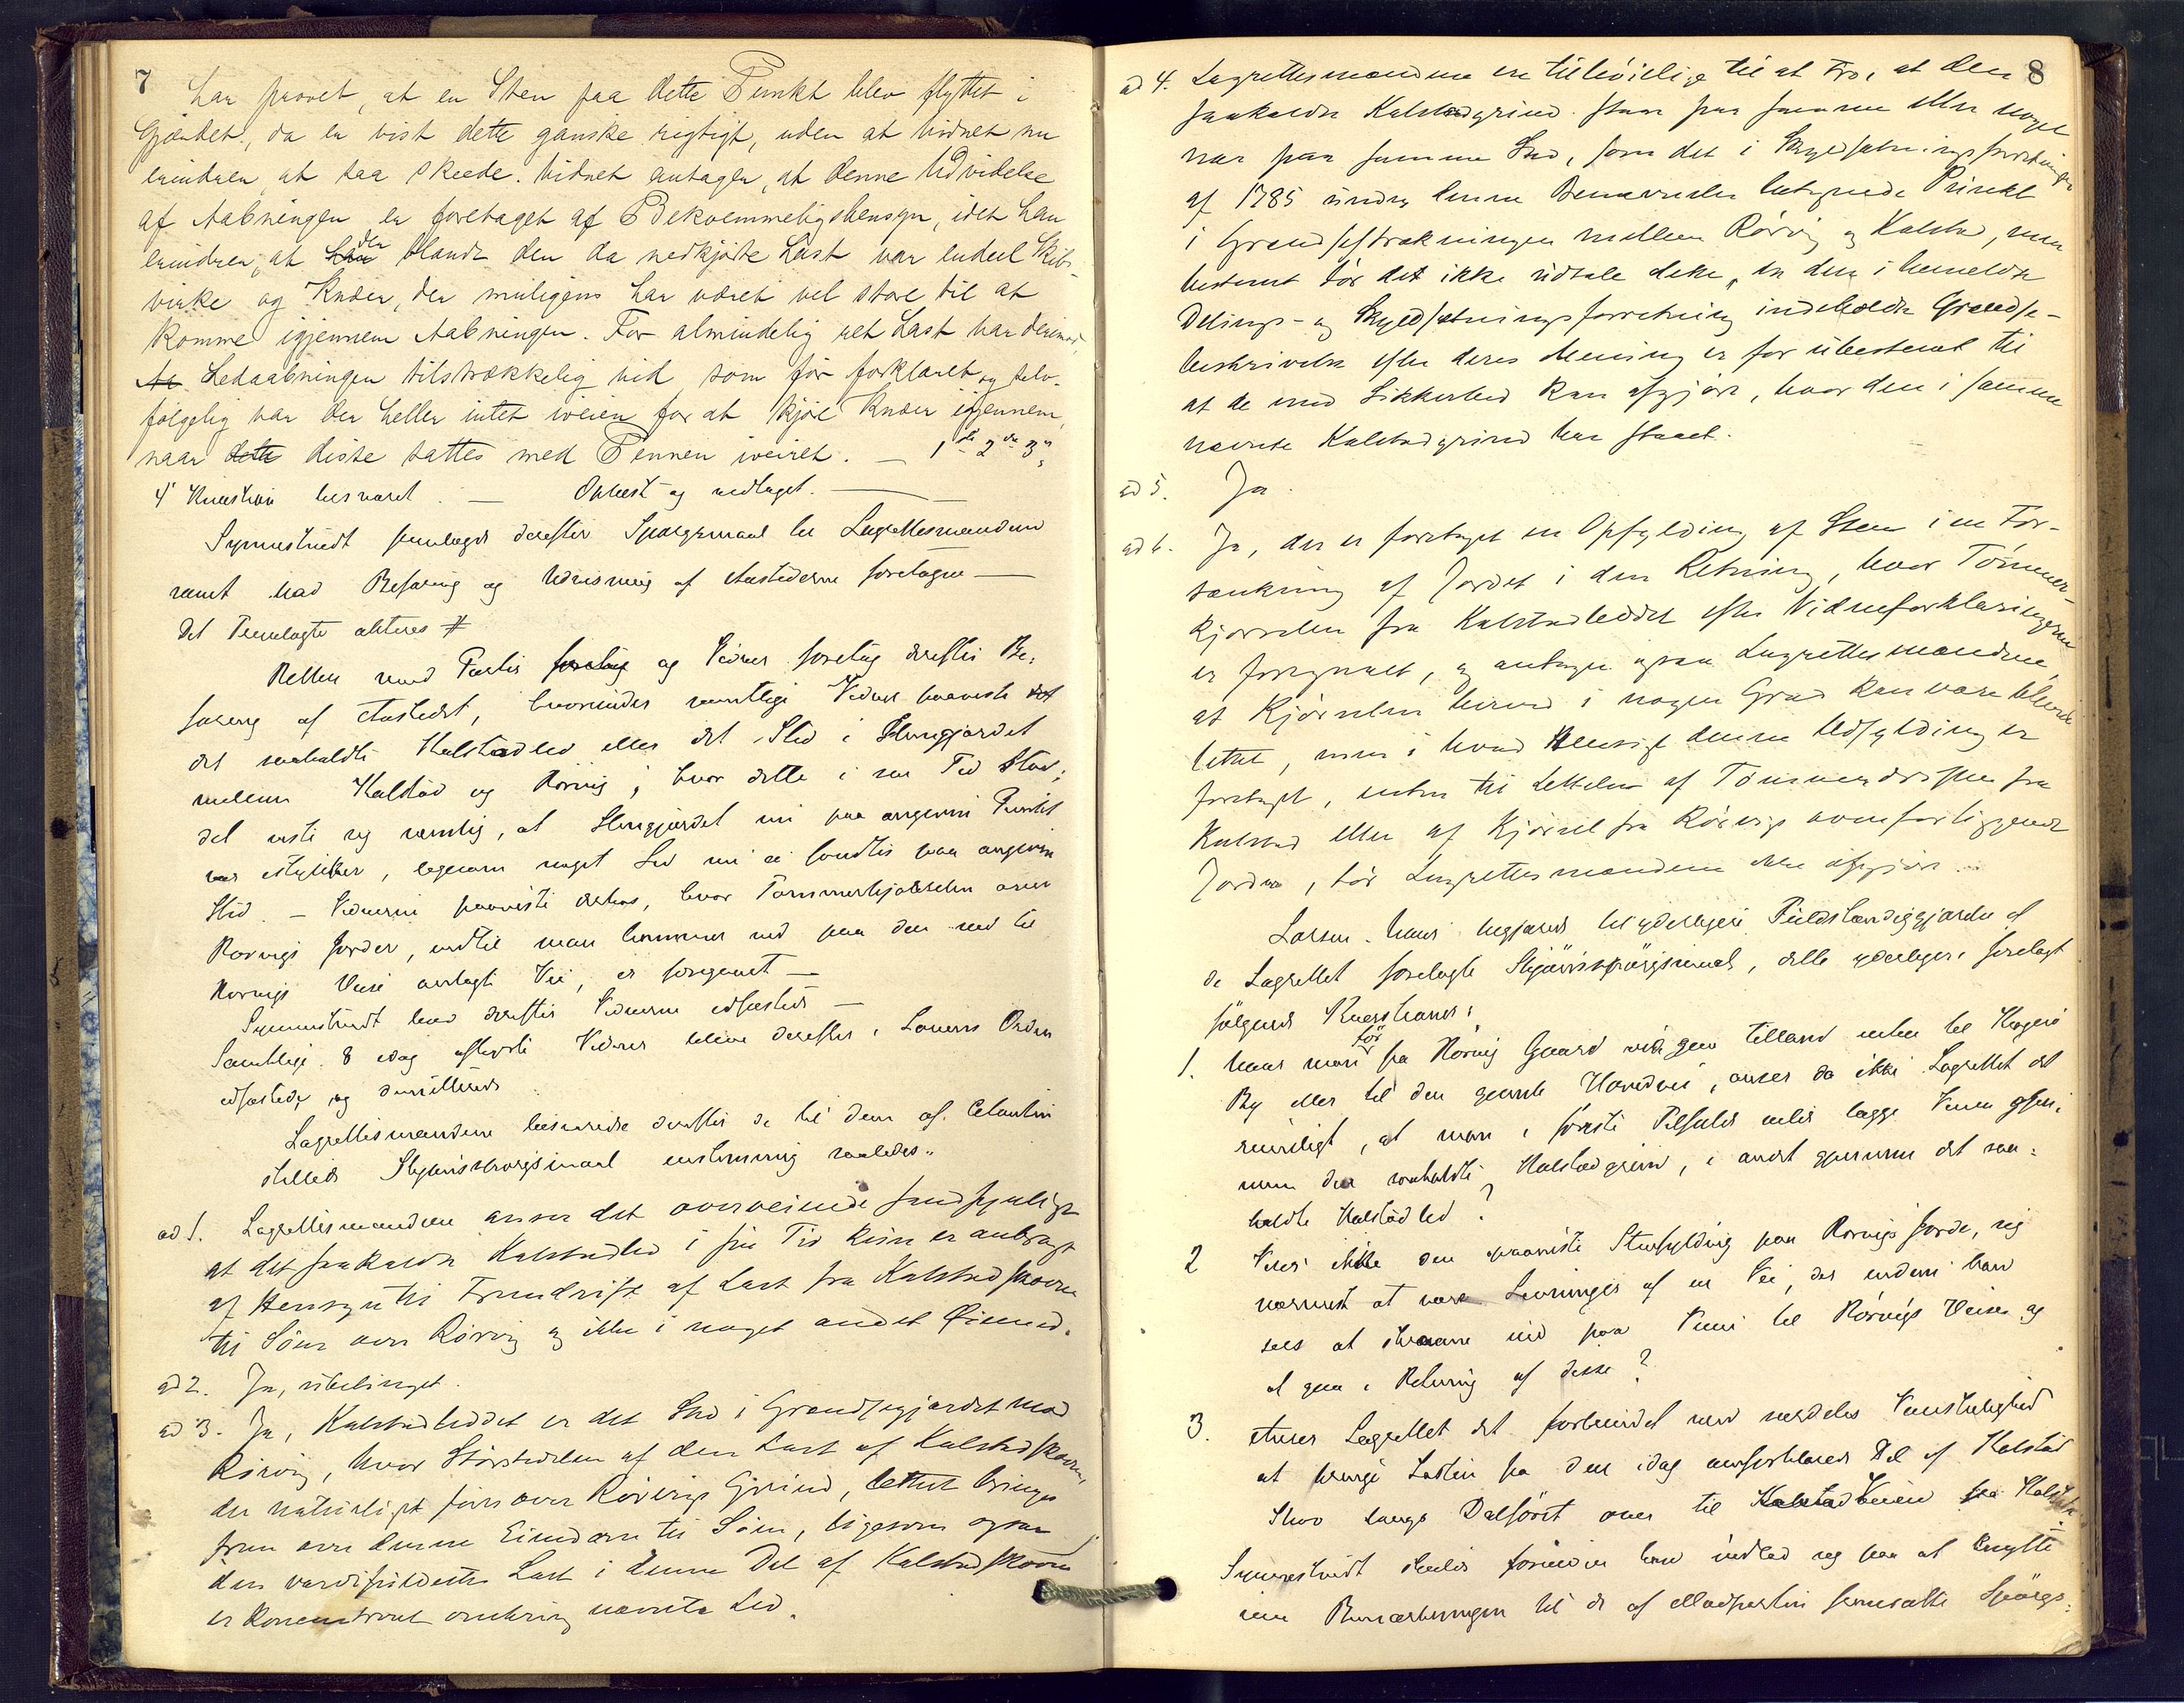 7
har prøvet, at en Sten paa dette Punkt blev flyttet i
Gjærdet, da er vist dette ganske rigtigt, uden at Vidnet nu
erindrer, at saa skeede. Vidnet antager, at denne Udvidelse
af Aabningen er foretaget af Bekvemmelighedshensyn, idet han
erindrer, at der blandt den da nedkjørte Last var endeel Skibs-
virke og Knæer, der muligens har været vel store til at
komme igjennem Aabningen. For almindelig ret Last var derimod
Ledaabningen tilstrækkelig vid som før forklaret og selv-
følgelig var der heller intet iveien for at kjøre Knæer igjennem,
naar disse sattes med Pennen iveiret. — 1ste 2den 3die
4de Kvæstion besvaret. — Oplæst og vedtaget. —
Synnestvedt fremlagde derefter Spørgsmaal til Lagrettesmændene
samt bad Befaring og Udvisning af Aastederne foretagne —
Det Fremlagte akteres #
Retten med Parter og Vidner foretog derefter Be-
faring af Aastedet, hvorunder samtlige Vidner paaviste
det saakaldte Kalstadled eller det Sted i Stengjærdet
mellem Kalstad og Rørvig, hvor dette i sin Tid stod;
det viste sig nemlig, at Stengjærdet nu paa angivne Punkt
var istykker, ligesom noget Led nu ei fandtes paa angivne
Sted. — Vidnerne paaviste derhos, hvor Tømmerkjørselen over
Rørvigs Jorder, indtil man kommer ned paa den ned til
Rørvigs Huse anlagte Vei, er foregaaet —
Synnestvedt bad derefter Vidnerne edfæstede —
Samtlige 8 idag afhørte Vidner bleve derefter i Lovens Orden
edfæstede og dimitterede
Lagrettesmændene besvarede derefter de til dem af Citanten
stillede Skjønsspørgsmaal enstemmig saaledes:
ad 1. Lagrettesmændene anser det overveiende sandsynligt
at det saakaldte Kalstadled i sin Tid kun er anbragt
af Hensyn til Fremdrift af Last fra Kalstadskoven
til Søen over Rørvig og ikke i noget andet Øiemed.
ad 2. Ja, ubetinget.
ad 3. Ja, Kalstadleddet er det Sted i Grændsegjærdet mod
Rørvig, hvor Størstedelen af den Last af Kalstadskoven,
der naturligst føres over Rørvigs Grund, lettest bringes
frem over denne Eiendom til Søen, ligesom ogsaa
den værdifuldeste Last i denne Del af Kalstadskoven
er koncentreret omkring nævnte Led.
8
ad 4. Lagrettesmændene ere tilbøielige til at tro, at den
saakaldte Kalstadgrind staar paa samme eller noget
nær paa samme Sted, som det i Skyldsætningsforretningen
af 1785 under denne Benævnelse betegnede Punkt
i Grændsestrækningen mellem Rørvig og Kalstad, men
bestemt tør det ikke udtale dette, da den i bemeldte
Delings- og Skyldsætningsforretning indeholdte Grændse-
beskrivelse efter deres Mening er for ubestemt til
at de med Sikkerhed kan afgjøre, hvor den i samme
nævnte Kalstadgrind har staaet.
ad 5. Ja.
ad 6. Ja, der er foretaget en Opfyldning af Sten i en For-
sænkning af Jordet i den Retning, hvor Tømmer-
kjørselen fra Kalstadleddet efter Vidneforklaringerne
er foregaaet, og antager ogsaa Lagrettesmændene,
at Kjørselen herved i nogen Grad kan være bleven
lettet, men i hvad Hensigt denne Udfyldning er
foretaget, enten til Lettelse af Tømmerdriften fra
Kalstad eller af Kjørsel fra Rørvigs ovenforliggende
Jorder, tør Lagrettesmændene ikke afgjøre.
Larsen. Han begjærede til yderligere Fuldstændiggjørelse af
de Lagrettet forelagte Skjønsspørgsmaal, dette yderligere forelagt
følgende Kvæstioner:
1. Naar man før fra Rørvig Gaard vilde gaa tillands enten til Kragerø
By eller til den gamle Hovedvei, anser da ikke Lagrettet det
rimeligt, at man i første Tilfælde vilde lægge Veien gjen-
nem den saakaldte Kalstadgrind, i andet gjennem det saa-
kaldte Kalstadled?
2 Viser ikke den paaviste Stenfyldning paa Rørvigs Jorde, sig
nærmest at være Levninger af en Vei, der endnu kan
sees at skraane ind paa Veien til Rørvigs Huse og
at gaa i Retning af disse?
3. Anser Lagrettet det forbundet med særdeles Vanskelighed
at bringe Lasten fra den idag omforklarede Del af Kalstad
Skov langs Dalføret over til Kalstadveien fra Kalstad.
Synnestvedt havde forinden han indlod sig paa at knytte
sine Bemærkninger til de af Modparten fremsatte Spørgs-